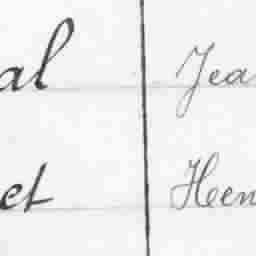 al Jea
et Hen